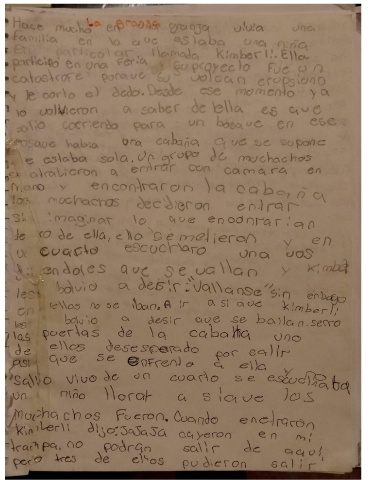 La granja
Hace mucho en granja vivia una
familia en la que estaba una niña
En particular llamada Kimberli. Ella
participo en una feria y su proyecto fue un
catastrofe porque su volcan erupsiono
y le corto el dedo. Desde ese momento ya
lo volvieron a saber de lella es que
salio corriendo para un bosque en ese
bosque habia una cabaña que se supone
e estaba sola, un grupo de muchachos
se atrabieron a entrar con camara en
mano y encontraron la cabaña
los muchachos decidieron entrar
si imaginar lo que encontrarian
de ro de ella, ello se metieron y en
un cuarto escucharo una vos
diciendoles que se vallan y Kimber
les bolvio a desir: "vallanse" sin enbago
en ellos no se iban. A ir asi que Kimberli
les bolvio a desir que se bailan. serro
las puertas de la cabaña uno
de ellos desesperado por salir
asi que se enfrento a ella y no
salio vivo de un cuarto se escuchaba
un niño llorar a sique los
muchachos fueron. Cuando enetraron
Kimberli dijo: Jajaja cayeron en mi
trampa. no podran salir de aqui
pero tres de ellos pudieron salir